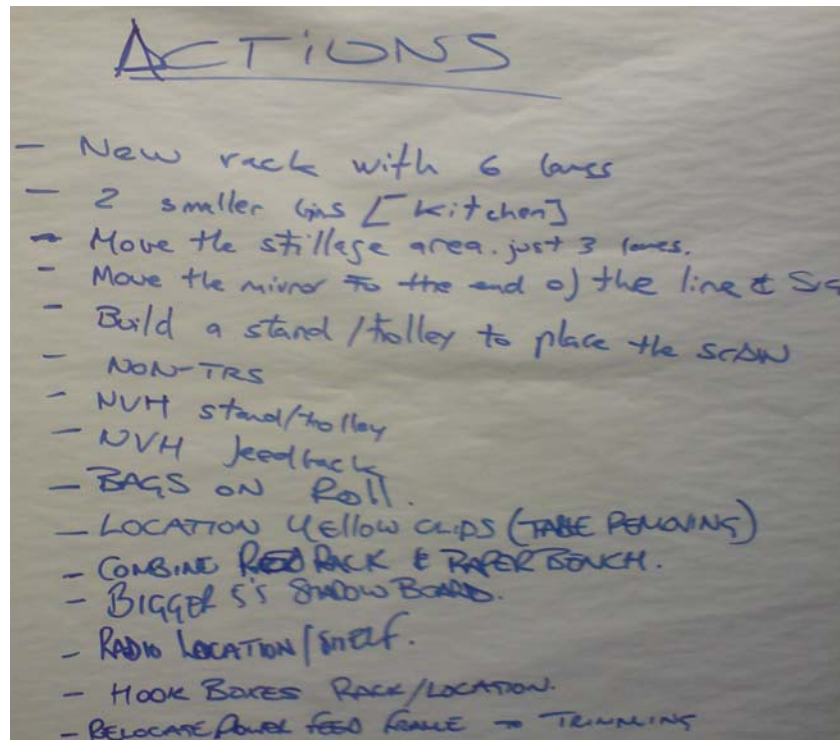 ACTIONS
- New rack with 6 lanes
- 2 smaller bins [Kitchen]
- Move the stillage area. just 3 lanes.
- Move the mirror to the end of the line &
- Build a stand/trolley to place the SCAN
- NON-TRS
- NVH stand/trolley
- NVH feedback
- BAGS ON Roll.
- LOCATION YELLOW CLIPS (TABLE REMOVING)
- COMBINE RED RACK & PAPER BENCH.
- BIGGER 5'S SHADOW BOARD.
- RADIO LOCATION/SHELF.
- HOOK BOXES RACK/LOCATION.
- RELOCATE POWER FEED FRAME → TRIMMING